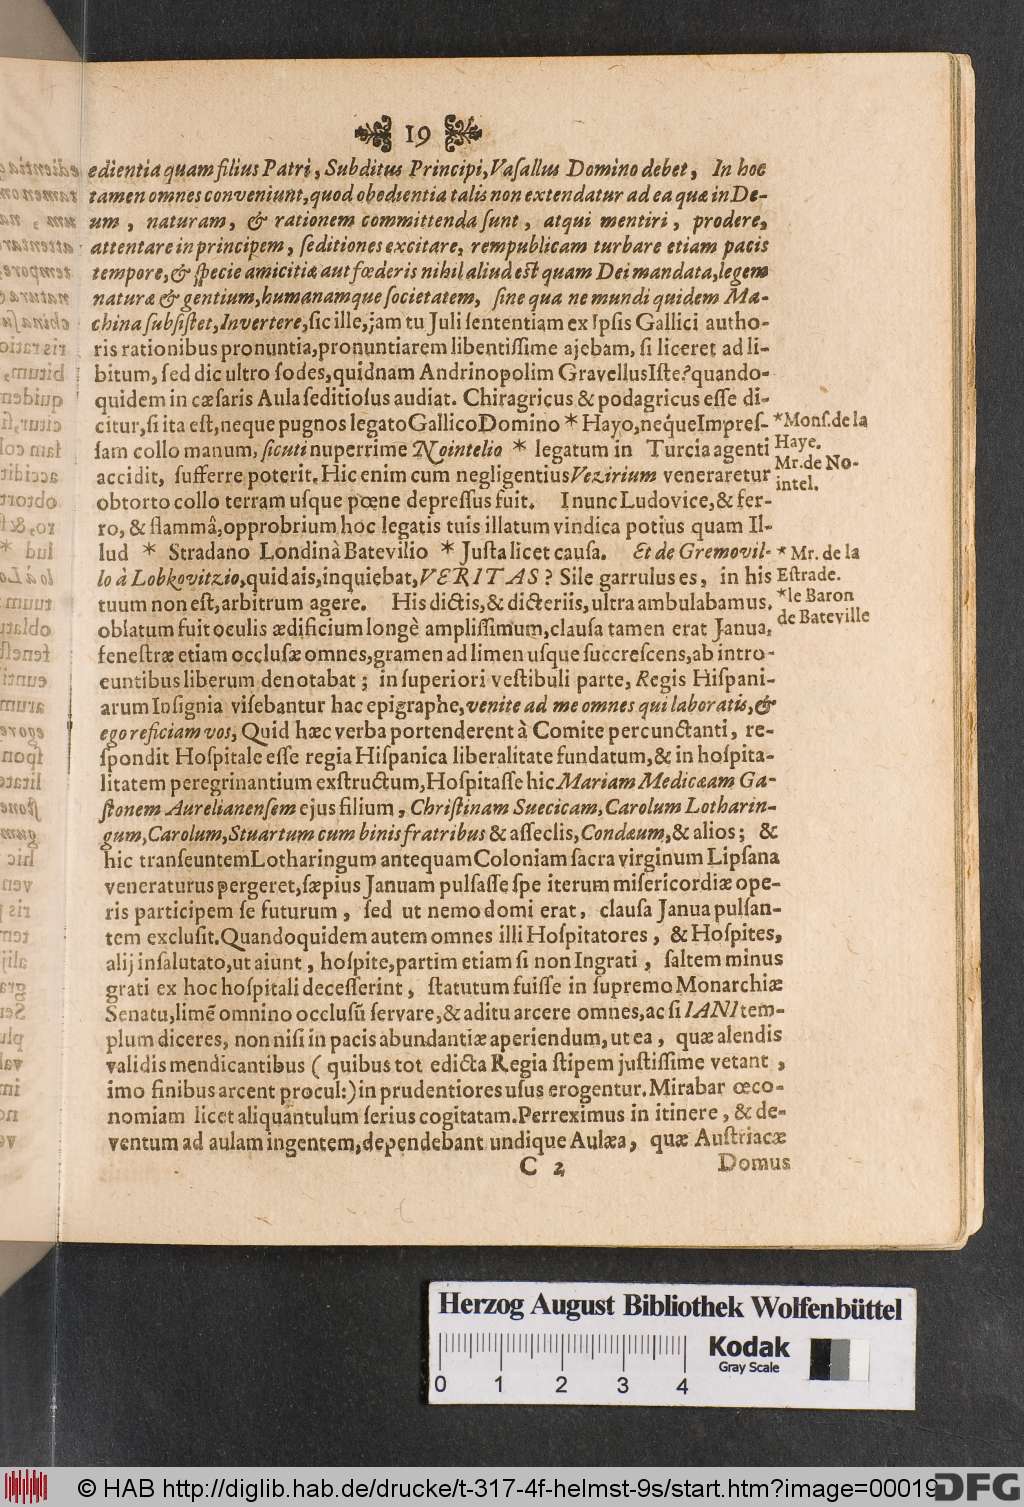 19
edientia quam filius Patri, Subditus Principi, Vaſallus Domino debet, In hoc
tamen omnes conveniunt, quod obedientia talis non extendatur ad ea quæ in De-
um, naturam, & rationem committenda ſunt, atqui mentiri, prodere,
attentare in principem, ſeditiones excitare, rempublicam turbare etiam pacis
tempore, & ſpecie amicitiæ aut fœderis nihil aliud eſt quam Dei mandata, legem
naturæ & gentium, humanamque ſocietatem, ſine qua ne mundi quidem Ma-
china ſubſiſtet, Invertere, ſic ille, jam tu Juli ſententiam ex Ipſis Gallici autho-
ris rationibus pronuntia, pronuntiarem libentiſſime ajebam, ſi liceret ad li-
bitum, ſed dic ultro ſodes, quidnam Andrinopolim Gravellus Iſte? quando-
quidem in cæſaris Aula ſeditioſus audiat. Chiragricus & podagricus eſſe di-
citur, ſi ita eſt, neque pugnos legato Gallico Domino * Hayo, neque Impreſ- *Monſ. de la
ſam collo manum, ſicuti nuperrime Nointelio * legatum in Turcia agenti Haye.
accidit, ſufferre poterit. Hic enim cum negligentius Vezirium veneraretur Mr. de No-
obtorto collo terram uſque pœne depreſſus fuit. I nunc Ludovice, & fer- intel.
ro, & flammâ, opprobrium hoc legatis tuis illatum vindica potius quam Il-
lud * Stradano Londinà Batevilio * Juſta licet cauſa. Et de Gremovil- * Mr. de la
lo à Lobkovitzio, quid ais, inquiebat, VERITAS? Sile garrulus es, in his Eſtrade.
tuum non eſt, arbitrum agere. His dictis, & dicteriis, ultra ambulabamus, *le Baron
oblatum fuit oculis ædificium longè ampliſſimum, clauſa tamen erat Janua, de Bateville
feneſtræ etiam occluſæ omnes, gramen ad limen uſque ſuccreſcens, ab intro-
euntibus liberum denotabat; in ſuperiori veſtibuli parte, Regis Hiſpani-
arum Inſignia viſebantur hac epigraphe, venite ad me omnes qui laboratis, &
ego reficiam vos, Quid hæc verba portenderent à Comite percunctanti, re-
ſpondit Hoſpitale eſſe regia Hiſpanica liberalitate fundatum, & in hoſpita-
litatem peregrinantium exſtructum, Hoſpitaſſe hic Mariam Medicæam Ga-
ſtonem Aurelianenſem ejus filium, Chriſtinam Suecicam, Carolum Lotharin-
gum, Carolum, Stuartum cum binis fratribus & aſſeclis, Condæum, & alios; &
hic tranſeuntem Lotharingum antequam Coloniam ſacra virginum Lipſana
veneraturus pergeret, ſæpius Januam pulſaſſe ſpe iterum miſericordiæ ope-
ris participem ſe futurum, ſed ut nemo domi erat, clauſa Janua pulſan-
tem excluſit. Quandoquidem autem omnes illi Hoſpitatores, & Hoſpites,
alij inſalutato, ut aiunt, hoſpite, partim etiam ſi non Ingrati, ſaltem minus
grati ex hoc hoſpitali deceſſerint, ſtatutum fuiſſe in ſupremo Monarchiæ
Senatu, limē omnino occluſū ſervare, & aditu arcere omnes, ac ſi IANI tem-
plum diceres, non niſi in pacis abundantiæ aperiendum, ut ea, quæ alendis
validis mendicantibus (quibus tot edicta Regia ſtipem juſtiſſime vetant,
imo finibus arcent procul:) in prudentiores uſus erogentur. Mirabar œco-
nomiam licet aliquantulum ſerius cogitatam. Perreximus in itinere, & de-
ventum ad aulam ingentem, dependebant undique Aulæa, quæ Auſtriacæ
C 2 Domus
Herzog August Bibliothek Wolfenbüttel
Kodak
Gray Scale
0 1 2 3 4
© HAB http://diglib.hab.de/drucke/t-317-4f-helmst-9s/start.htm?image=00019
DFG